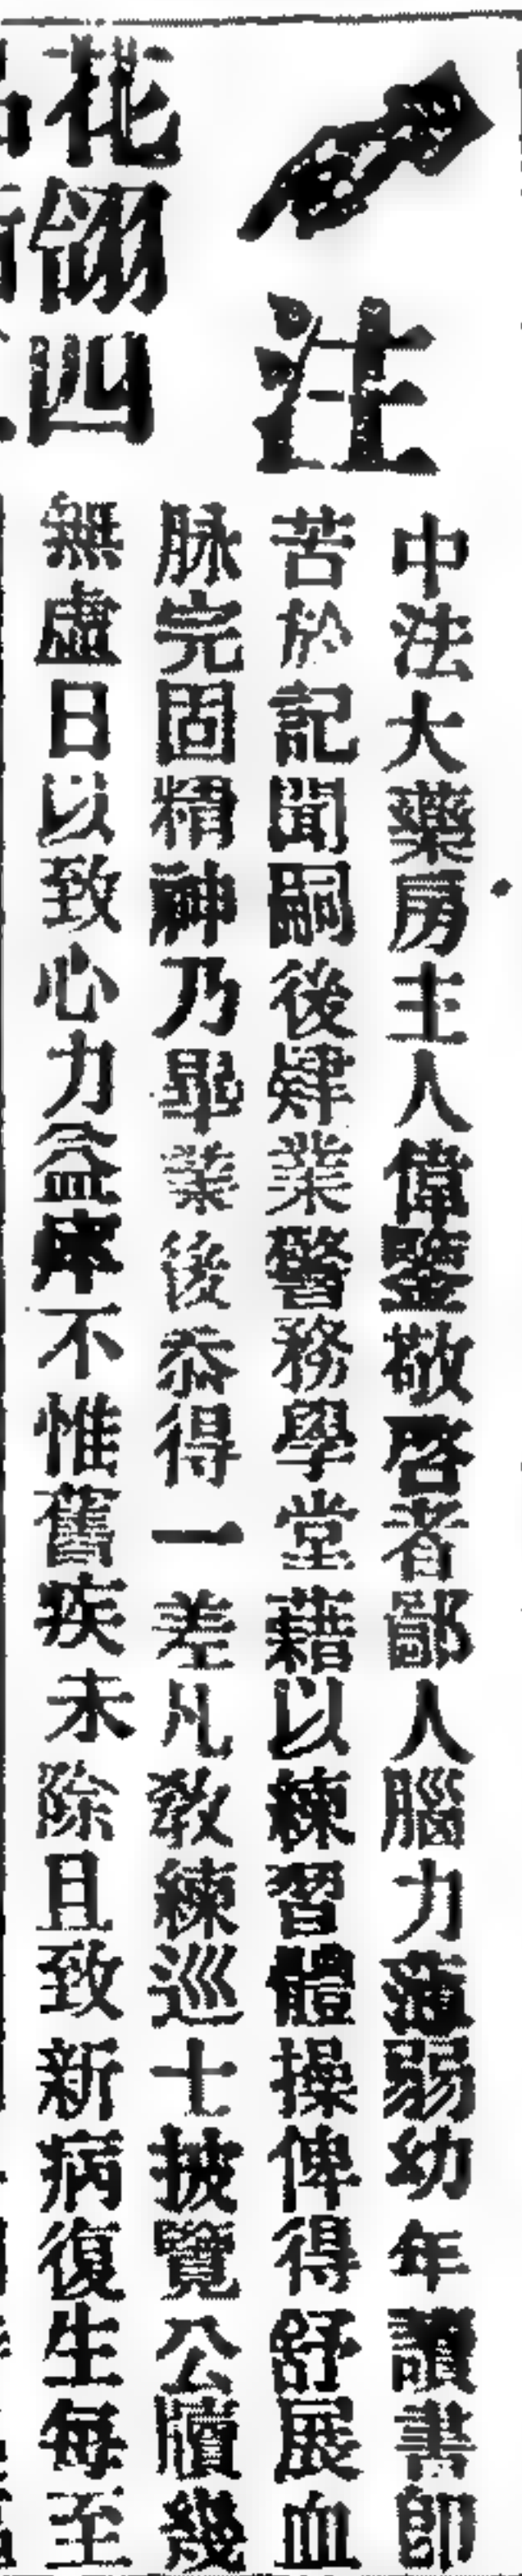 注
中法大藥房主人偉鑒敬啓者鄙人腦力薄弱幼年讀書卽
苦於記聞嗣後肄業警務學堂藉以練習體操俾得舒展血
脉完固精神乃畢業後忝得一差凡敎練巡士披覽公牘幾
花翎四
無虛日以致心力益瘁不惟舊疾未除且致新病復生每至